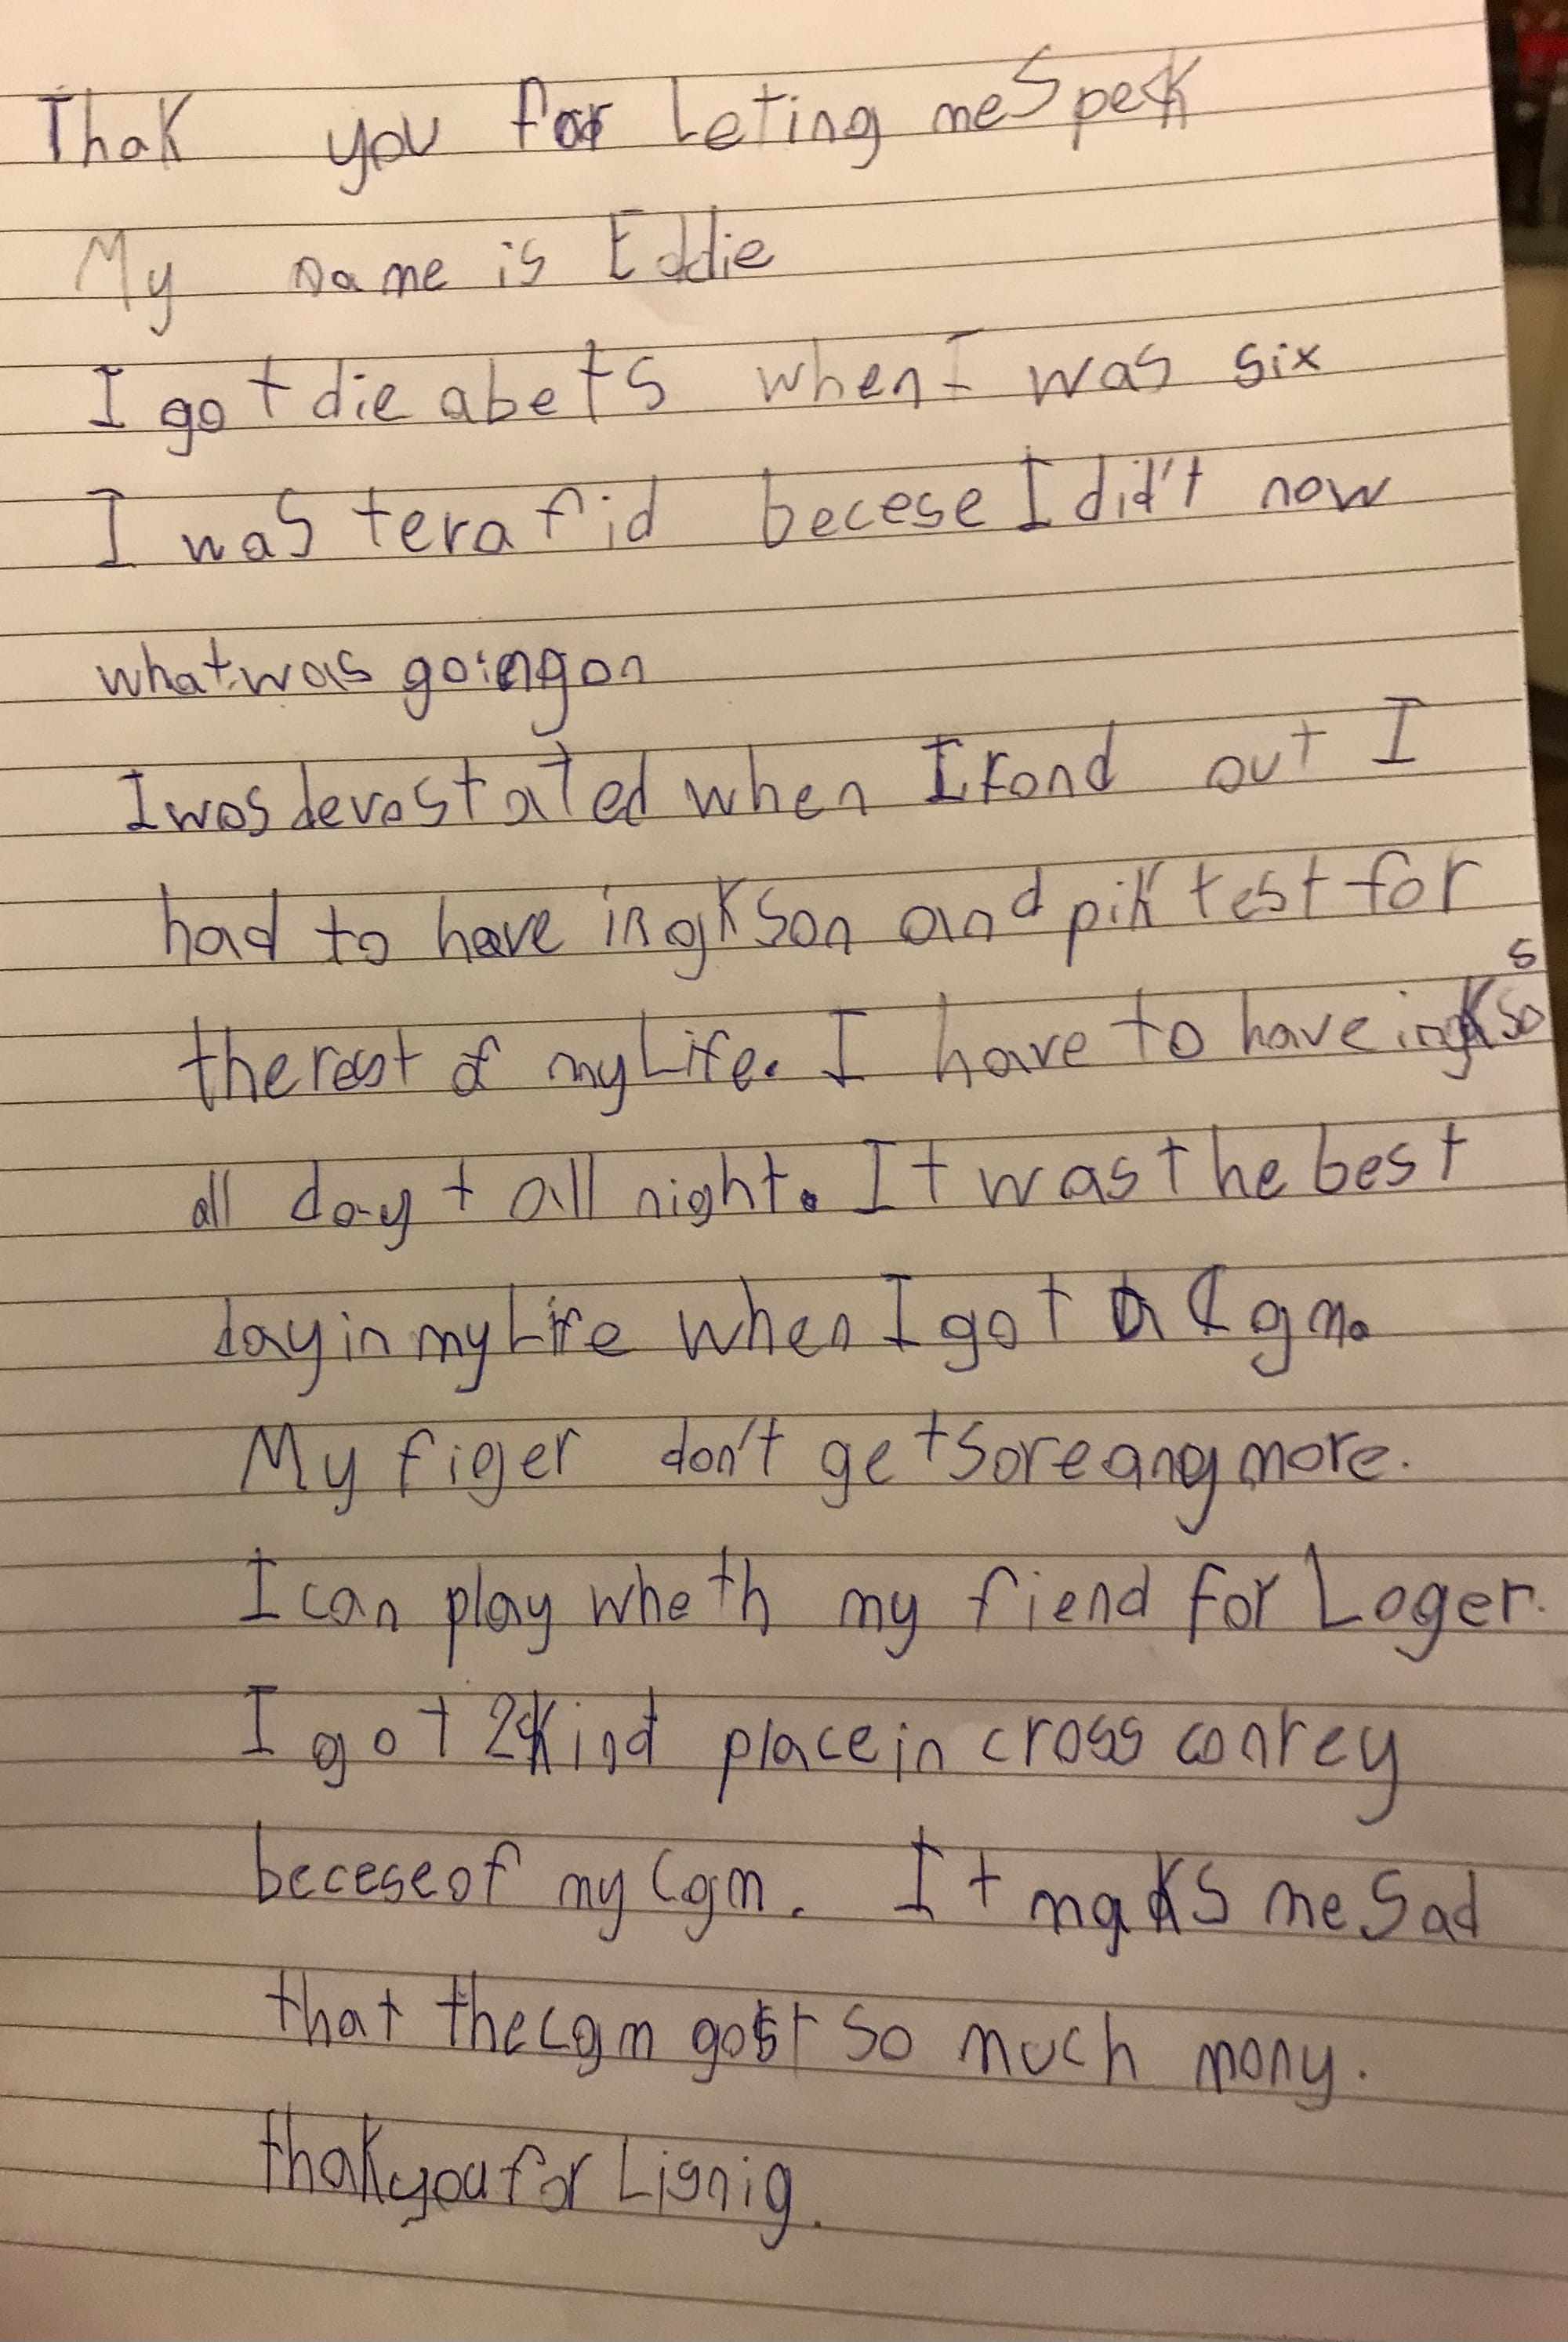 Thak you for Leting me Speak
My name is Eddie
I got die abets when I was six
I was terafid becese I did't now
what was going on
I was devastated when I fond out I
had to have ingkson and pik test for
the rest of my Life. I have to have ingksos
all day + all night. It was the best
day in my Life when I got a Cgm.
My figer don't get sore any more.
I can play wheth my fiend for Loger.
I got 2kind place in cross conrey
becese of my Cgm. It maks me Sad
that the cgm gost so much mony.
thak you for Lisnig.